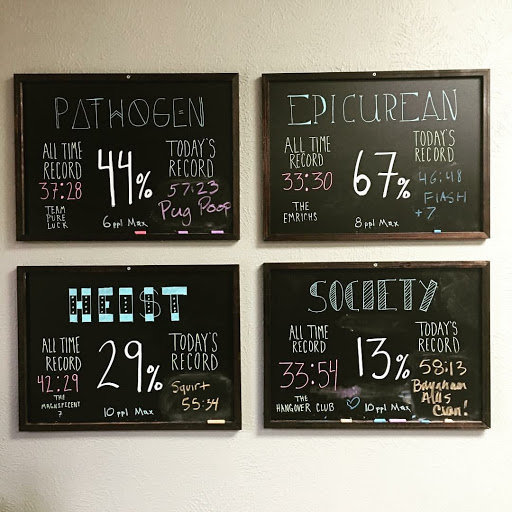 PATHOGEN
ALL TIME
RECORD
37:28
TEAM
PURE
LUCK
44%
6 ppl Max
TODAY'S
RECORD
57:23
Pug Poop
EPICUREAN
ALL TIME
RECORD
33:30
THE
EMRICHS
67%
8 ppl Max
TODAY'S
RECORD
46:48
FlASH
+7
HEIST
ALL TIME
RECORD
42:29
THE
MAGNIFICENT
7
29%
10 ppl Max
TODAY'S
RECORD
Squirt
55:34
SOCIETY
ALL TIME
RECORD
33:54
THE
HANGOVER CLUB
13%
10 ppl Max
TODAY'S
RECORD
58:13
Clan!